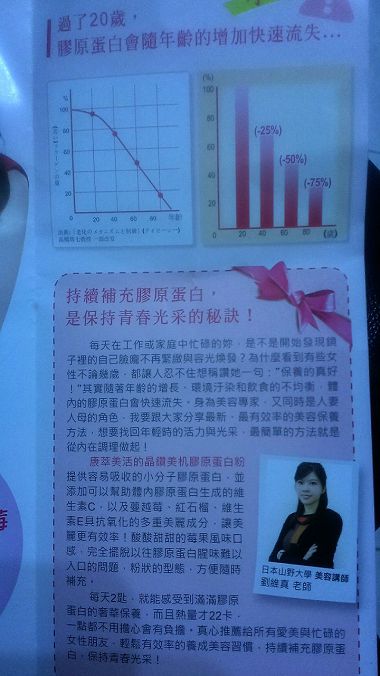 過了20歲，
膠原蛋白會隨年齡的增加快速流失…
%
100
80
60
40
20
0
20
40
60
80
年齡
(%)
100
80
60
40
20
0
(-25%)
(-50%)
(-75%)
20
40
60
80
(歲)
持續補充膠原蛋白，
是保持青春光采的秘訣！
每天在工作或家庭中忙碌的妳，是不是開始發現鏡
子裡的自己臉龐不再緊緻與容光煥發？為什麼看到有些女
性不論幾歲，都讓人忍不住想稱讚她一句："保養的真好
！"其實隨著年齡的增長、環境汙染和飲食的不均衡，體
內的膠原蛋白會快速流失。身為美容專家，又同時是人妻
人母的角色，我要跟大家分享最新、最有效率的美容保養
方法，想要找回年輕時的活力與光采，最簡單的方法就是
從內在調理做起！
康萃美活的晶鑽美机膠原蛋白粉
提供容易吸收的小分子膠原蛋白，並
添加可以幫助體內膠原蛋白生成的維
生素C，以及蔓越莓、紅石榴、維生
素E具抗氧化的多重美麗成分，讓美
麗更有效率！酸酸甜甜的莓果風味口
感，完全擺脫以往膠原蛋白腥味難以
入口的問題，粉狀的型態，方便隨時
補充。
每天2匙，就能感受到滿滿膠原
蛋白的奢華保養，而且熱量才22卡，
一點都不用擔心會有負擔。真心推薦給所有愛美與忙碌的
女性朋友，輕鬆有效率的養成美容習慣，持續補充膠原蛋
白，保持青春光采！
日本山野大學 美容講師
劉維真 老師
莓